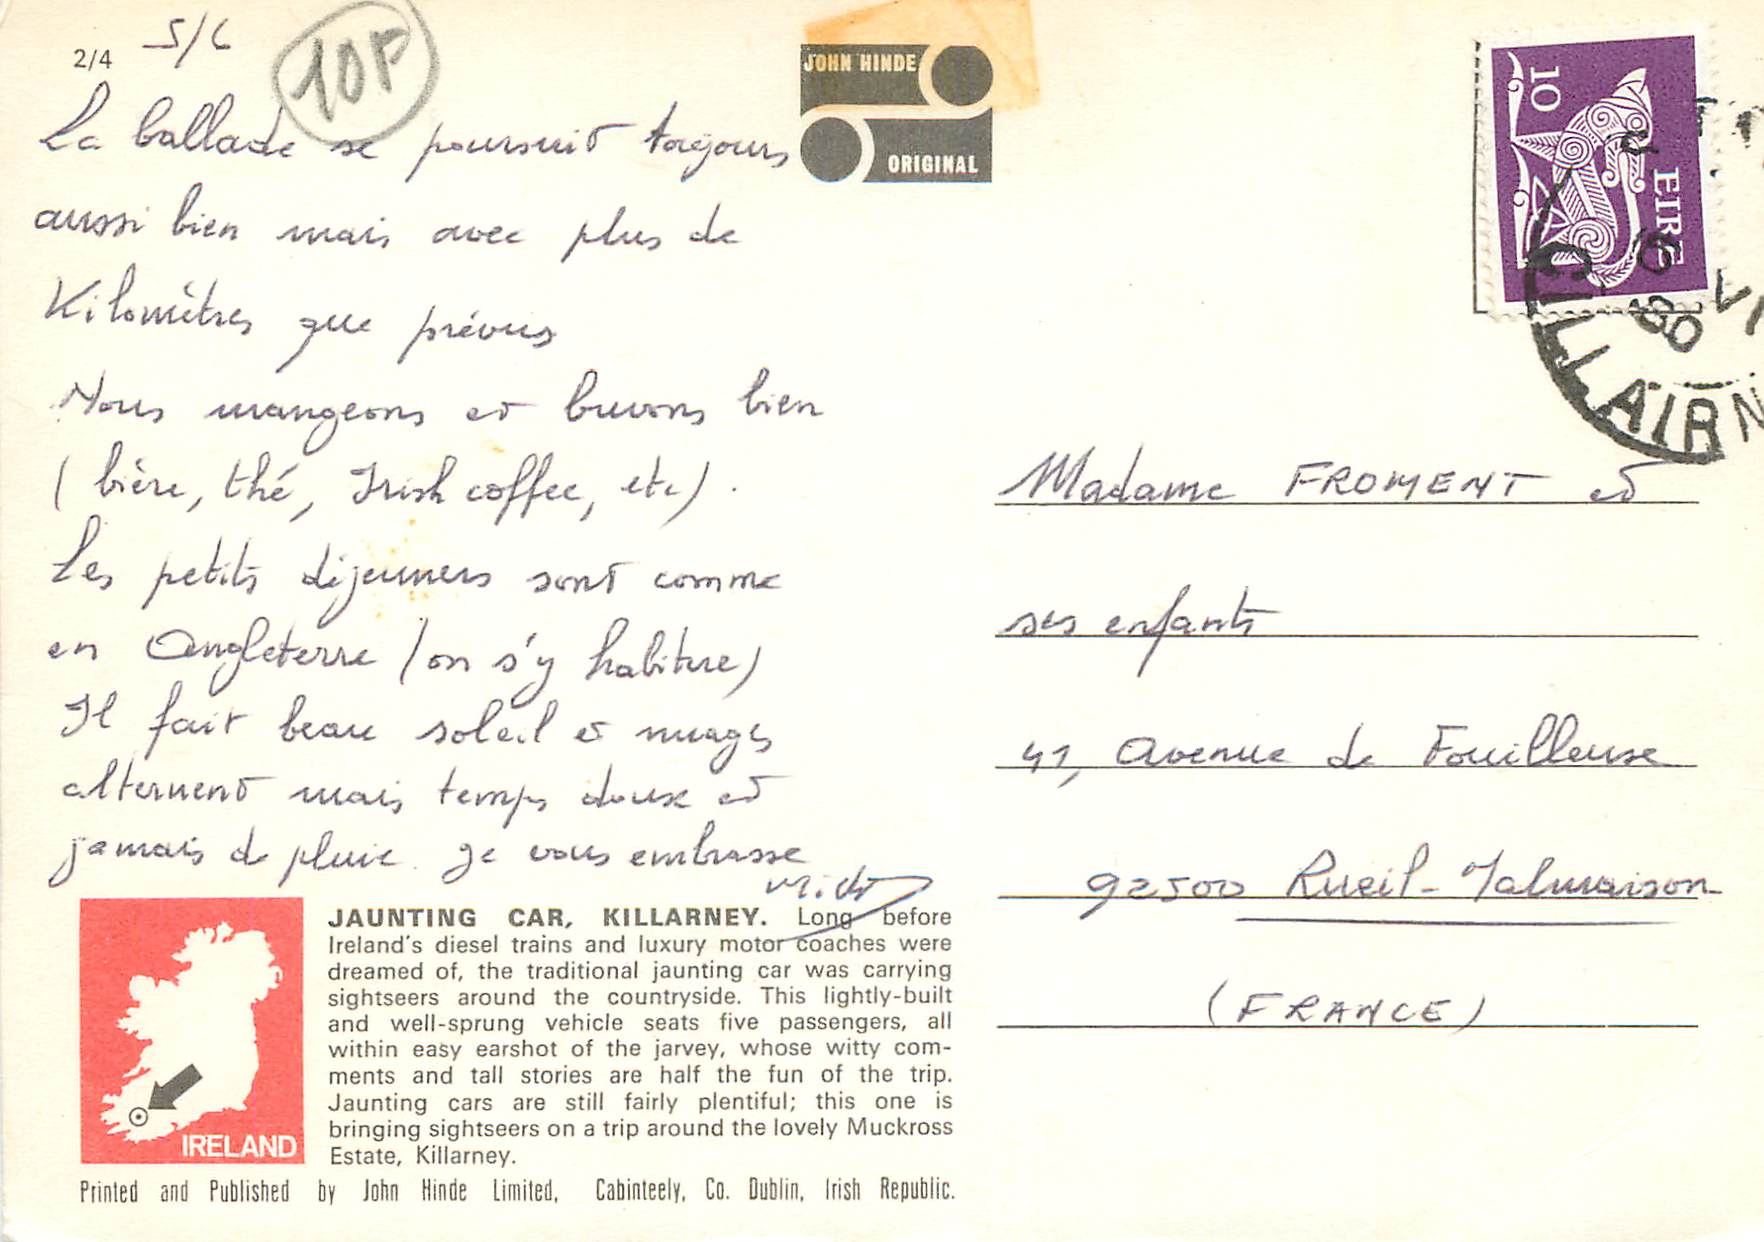 2/4 5/6
10F
JOHN HINDE
ORIGINAL
La ballade se poursuit toujours
aussi bien mais avec plus de
Kilomètres que prévus
Nous mangeons et buvons bien
(bière, thé, Irish coffee, etc).
Les petits déjeuners sont comme
en Angleterre (on s'y habitue)
Il fait beau soleil et nuages
alternent mais temps doux et
jamais de pluie. Je vous embrasse
10
EIRE
CILL AIRN
VI
80
Madame FROMENT et
ses enfants
41, Avenue de Fouilleuse
92500 Rueil-Malmaison
(FRANCE)
IRELAND
JAUNTING CAR, KILLARNEY. Long before
Ireland's diesel trains and luxury motor coaches were
dreamed of, the traditional jaunting car was carrying
sightseers around the countryside. This lightly-built
and well-sprung vehicle seats five passengers, all
within easy earshot of the jarvey, whose witty com-
ments and tall stories are half the fun of the trip.
Jaunting cars are still fairly plentiful; this one is
bringing sightseers on a trip around the lovely Muckross
Estate, Killarney.
Printed and Published by John Hinde Limited, Cabinteely, Co. Dublin, Irish Republic.